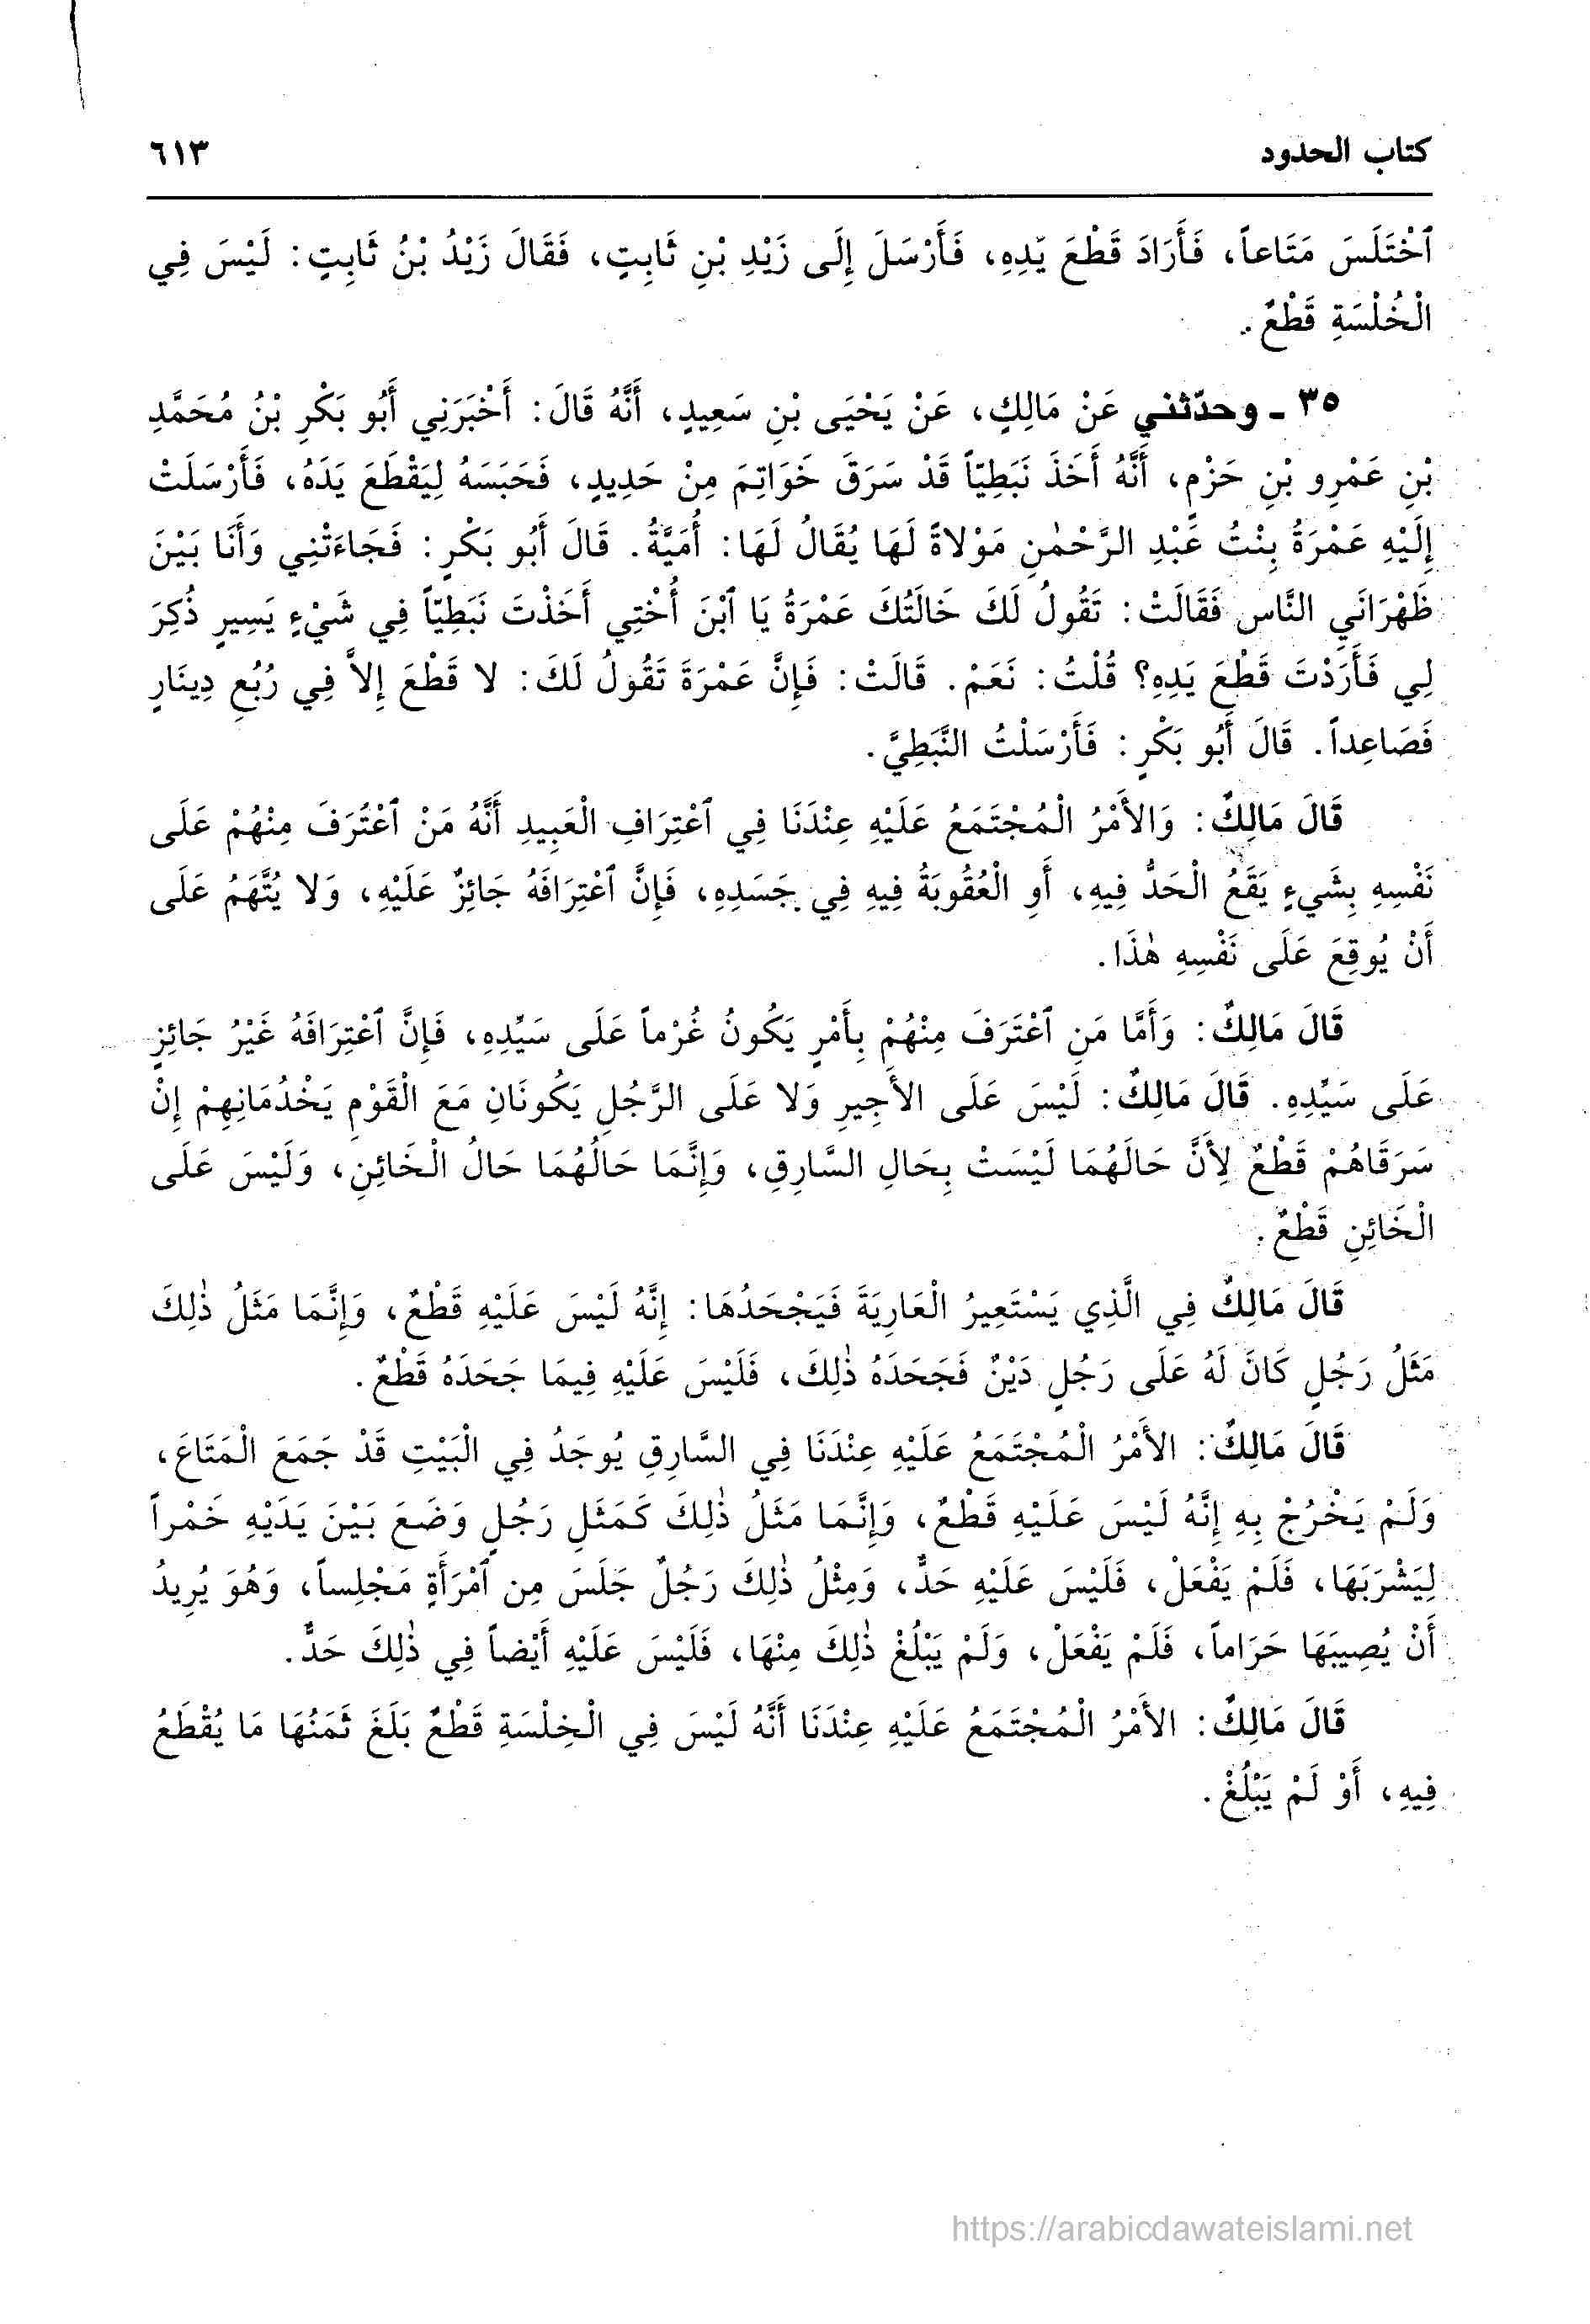 كتاب الحدود ٦١٣
ٱخْتَلَسَ مَتَاعاً، فَأَرَادَ قَطْعَ يَدِهِ، فَأَرْسَلَ إِلَى زَيْدِ بْنِ ثَابِتٍ، فَقَالَ زَيْدُ بْنُ ثَابِتٍ: لَيْسَ فِي
الْخُلْسَةِ قَطْعٌ.
٣٥ ـ وحدّثني عَنْ مَالِكٍ، عَنْ يَحْيَى بْنِ سَعِيدٍ، أَنَّهُ قَالَ: أَخْبَرَنِي أَبُو بَكْرِ بْنُ مُحَمَّدِ
بْنِ عَمْرِو بْنِ حَزْمٍ، أَنَّهُ أَخَذَ نَبَطِيّاً قَدْ سَرَقَ خَوَاتِمَ مِنْ حَدِيدٍ، فَحَبَسَهُ لِيَقْطَعَ يَدَهُ، فَأَرْسَلَتْ
إِلَيْهِ عَمْرَةُ بِنْتُ عَبْدِ الرَّحْمٰنِ مَوْلاةً لَهَا يُقَالُ لَهَا: أُمَيَّةُ. قَالَ أَبُو بَكْرٍ: فَجَاءَتْنِي وَأَنَا بَيْنَ
ظَهْرَانَيِ النَّاس فَقَالَتْ: تَقُولُ لَكَ خَالَتُكَ عَمْرَةُ يَا ٱبْنَ أُخْتِي أَخَذْتَ نَبَطِيّاً فِي شَيْءٍ يَسِيرٍ ذُكِرَ
لِي فَأَرَدْتَ قَطْعَ يَدِهِ؟ قُلْتُ: نَعَمْ. قَالَتْ: فَإِنَّ عَمْرَةَ تَقُولُ لَكَ: لا قَطْعَ إِلاَّ فِي رُبُعِ دِينَارٍ
فَصَاعِداً. قَالَ أَبُو بَكْرٍ: فَأَرْسَلْتُ النَّبَطِيَّ.
قَالَ مَالِكٌ: وَالأَمْرُ الْمُجْتَمَعُ عَلَيْهِ عِنْدَنَا فِي ٱعْتِرَافِ الْعَبِيدِ أَنَّهُ مَنْ ٱعْتَرَفَ مِنْهُمْ عَلَى
نَفْسِهِ بِشَيءٍ يَقَعُ الْحَدُّ فِيهِ، أَوِ الْعُقُوبَةُ فِيهِ فِي جَسَدِهِ، فَإِنَّ ٱعْتِرَافَهُ جَائِزٌ عَلَيْهِ، وَلا يُتَّهَمُ عَلَى
أَنْ يُوقِعَ عَلَى نَفْسِهِ هٰذَا.
قَالَ مَالِكٌ: وَأَمَّا مَنِ ٱعْتَرَفَ مِنْهُمْ بِأَمْرٍ يَكُونُ غُرْماً عَلَى سَيِّدِهِ، فَإِنَّ ٱعْتِرَافَهُ غَيْرُ جَائِزٍ
عَلَى سَيِّدِهِ. قَالَ مَالِكٌ: لَيْسَ عَلَى الأَجِيرِ وَلا عَلَى الرَّجُلِ يَكُونَانِ مَعَ الْقَوْمِ يَخْدُمَانِهِمْ إِنْ
سَرَقَاهُمْ قَطْعٌ لِأَنَّ حَالَهُمَا لَيْسَتْ بِحَالِ السَّارِقِ، وَإِنَّمَا حَالُهُمَا حَالُ الْخَائِنِ، وَلَيْسَ عَلَى
الْخَائِنِ قَطْعٌ.
قَالَ مَالِكٌ فِي الَّذِي يَسْتَعِيرُ الْعَارِيَةَ فَيَجْحَدُهَا: إِنَّهُ لَيْسَ عَلَيْهِ قَطْعٌ، وَإِنَّمَا مَثَلُ ذٰلِكَ
مَثَلُ رَجُلٍ كَانَ لَهُ عَلَى رَجُلٍ دَيْنٌ فَجَحَدَهُ ذٰلِكَ، فَلَيْسَ عَلَيْهِ فِيمَا جَحَدَهُ قَطْعٌ.
قَالَ مَالِكٌ: الأَمْرُ الْمُجْتَمَعُ عَلَيْهِ عِنْدَنَا فِي السَّارِقِ يُوجَدُ فِي الْبَيْتِ قَدْ جَمَعَ الْمَتَاعَ،
وَلَمْ يَخْرُجْ بِهِ إِنَّهُ لَيْسَ عَلَيْهِ قَطْعٌ، وَإِنَّمَا مَثَلُ ذٰلِكَ كَمَثَلِ رَجُلٍ وَضَعَ بَيْنَ يَدَيْهِ خَمْراً
لِيَشْرَبَهَا، فَلَمْ يَفْعَلْ، فَلَيْسَ عَلَيْهِ حَدٌّ، وَمِثْلُ ذٰلِكَ رَجُلٌ جَلَسَ مِن ٱمْرَأَةٍ مَجْلِساً، وَهُوَ يُرِيدُ
أَنْ يُصِيبَهَا حَرَاماً، فَلَمْ يَفْعَلْ، وَلَمْ يَبْلُغْ ذٰلِكَ مِنْهَا، فَلَيْسَ عَلَيْهِ أَيْضاً فِي ذٰلِكَ حَدٌّ.
قَالَ مَالِكٌ: الأَمْرُ الْمُجْتَمَعُ عَلَيْهِ عِنْدَنَا أَنَّهُ لَيْسَ فِي الْخِلْسَةِ قَطْعٌ بَلَغَ ثَمَنُهَا مَا يُقْطَعُ
فِيهِ، أَوْ لَمْ يَبْلُغْ.
https://arabicdawateislami.net